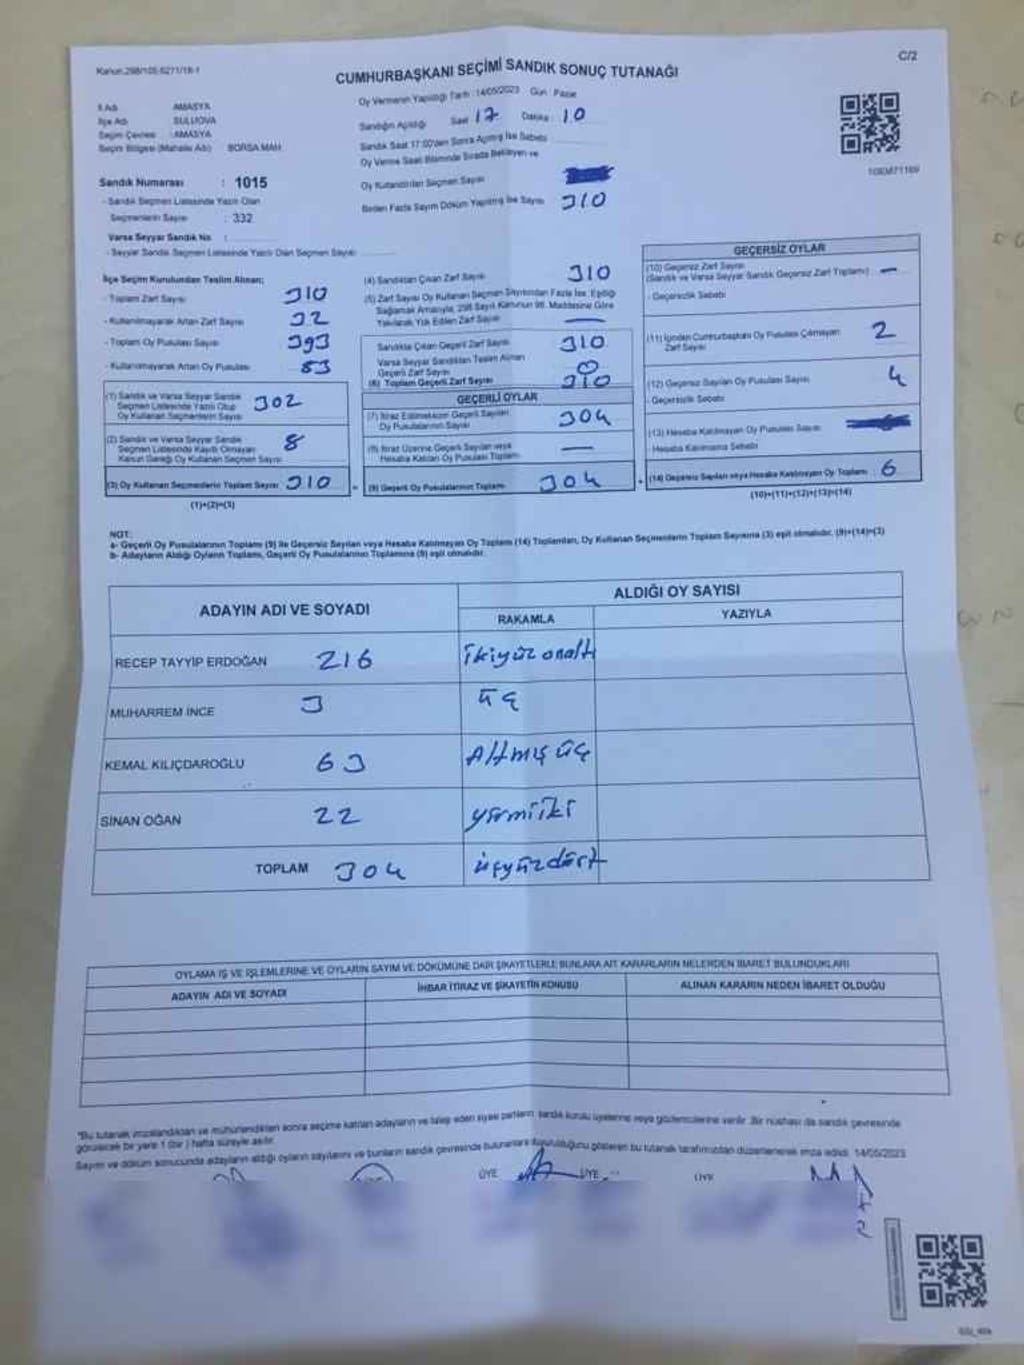 Kanun:298/105-6271/18-1
C/2
CUMHURBAŞKANI SEÇİMİ SANDIK SONUÇ TUTANAĞI
İl Adı AMASYA
İlçe Adı SULUOVA
Seçim Çevresi : AMASYA
Seçim Bölgesi (Mahalle Adı) BORSA MAH.
Sandık Numarası : 1015
- Sandık Seçmen Listesinde Yazılı Olan
Seçmenlerin Sayısı : 332
Varsa Seyyar Sandık No :
- Seyyar Sandık Seçmen Listesinde Yazılı Olan Seçmen Sayısı:
Oy Vermenin Yapıldığı Tarih : 14/05/2023 Gün : Pazar
Sandığın Açıldığı Saat 17 Dakika : 10
Sandık Saat 17:00'den Sonra Açılmış İse Sebebi
Oy Verme Saati Bitiminde Sırada Bekleyen ve
Oy Kullandırılan Seçmen Sayısı
Birden Fazla Sayım Döküm Yapılmış İse Sayısı 310
İlçe Seçim Kurulundan Teslim Alınan;
- Toplam Zarf Sayısı 310
- Kullanılmayarak Artan Zarf Sayısı 32
- Toplam Oy Pusulası Sayısı 393
- Kullanılmayarak Artan Oy Pusulası 83
(1) Sandık ve Varsa Seyyar Sandık
Seçmen Listesinde Yazılı Olup
Oy Kullanan Seçmenlerin Sayısı 302
(2) Sandık ve Varsa Seyyar Sandık
Seçmen Listesinde Kayıtlı Olmayan
Kanun Gereği Oy Kullanan Seçmen Sayısı 8
(3) Oy Kullanan Seçmenlerin Toplam Sayısı 310
(1)+(2)=(3)
(4) Sandıktan Çıkan Zarf Sayısı 310
(5) Zarf Sayısı Oy Kullanan Seçmen Sayısından Fazla İse, Eşitliği
Sağlamak Amacıyla, 298 Sayılı Kanunun 98. Maddesine Göre
Yakılarak Yok Edilen Zarf Sayısı —
Sandıkta Çıkan Geçerli Zarf Sayısı 310
Varsa Seyyar Sandıktan Teslim Alınan
Geçerli Zarf Sayısı 0
(6) Toplam Geçerli Zarf Sayısı 310
GEÇERLİ OYLAR
(7) İtiraz Edilmeksizin Geçerli Sayılan
Oy Pusulalarının Sayısı 304
(8) İtiraz Üzerine Geçerli Sayılan veya
Hesaba Katılan Oy Pusulası Toplamı —
(9) Geçerli Oy Pusulalarının Toplamı 304
GEÇERSİZ OYLAR
(10) Geçersiz Zarf Sayısı
(Sandık ve Varsa Seyyar Sandık Geçersiz Zarf Toplamı) —
- Geçersizlik Sebebi
(11) İçinden Cumhurbaşkanı Oy Pusulası Çıkmayan
Zarf Sayısı 2
(12) Geçersiz Sayılan Oy Pusulası Sayısı 4
- Geçersizlik Sebebi
(13) Hesaba Katılmayan Oy Pusulası Sayısı
- Hesaba Katılmama Sebebi
(14) Geçersiz Sayılan veya Hesaba Katılmayan Oy Toplamı 6
(10)+(11)+(12)+(13)=(14)
NOT:
a- Geçerli Oy Pusulalarının Toplamı (9) ile Geçersiz Sayılan veya Hesaba Katılmayan Oy Toplamı (14) Toplamları, Oy Kullanan Seçmenlerin Toplam Sayısına (3) eşit olmalıdır. (9)+(14)=(3)
b- Adayların Aldığı Oyların Toplamı, Geçerli Oy Pusulalarının Toplamına (9) eşit olmalıdır.
ADAYIN ADI VE SOYADI
ALDIĞI OY SAYISI
RAKAMLA YAZIYLA
RECEP TAYYİP ERDOĞAN 216 ikiyüz onaltı
MUHARREM İNCE 3 üç
KEMAL KILIÇDAROĞLU 63 Altmış üç
SİNAN OĞAN 22 yirmi iki
TOPLAM 304 üçyüzdört
OYLAMA İŞ VE İŞLEMLERİNE VE OYLARIN SAYIM VE DÖKÜMÜNE DAİR ŞİKAYETLERLE BUNLARA AİT KARARLARIN NELERDEN İBARET BULUNDUKLARI
ADAYIN ADI VE SOYADI İHBAR İTİRAZ VE ŞİKAYETİN KONUSU ALINAN KARARIN NEDEN İBARET OLDUĞU
*Bu tutanak imzalandıktan ve mühürlendikten sonra seçime katılan adayların ve talep eden siyasi partilerin sandık kurulu üyelerine veya gözlemcilerine verilir. Bir nüshası da sandık çevresinde
görülecek bir yere 1 (bir) hafta süreyle asılır.
Sayım ve döküm sonucunda adayların aldığı oyların sayılarını ve bunların sandık çevresinde bulunanlara duyurulduğunu gösteren bu tutanak tarafımızdan düzenlenerek imza edildi. 14/05/2023
ÜYE ÜYE ÜYE